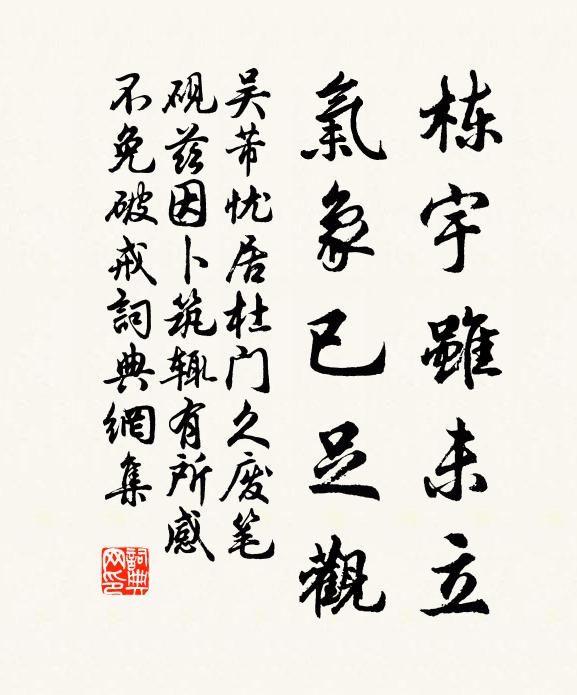 栋宇雖未立
氣象已足觀
吴芾忧居杜门久废笔
砚兹因卜筑辄有所感
不免破戒詞典網集
詞典网印